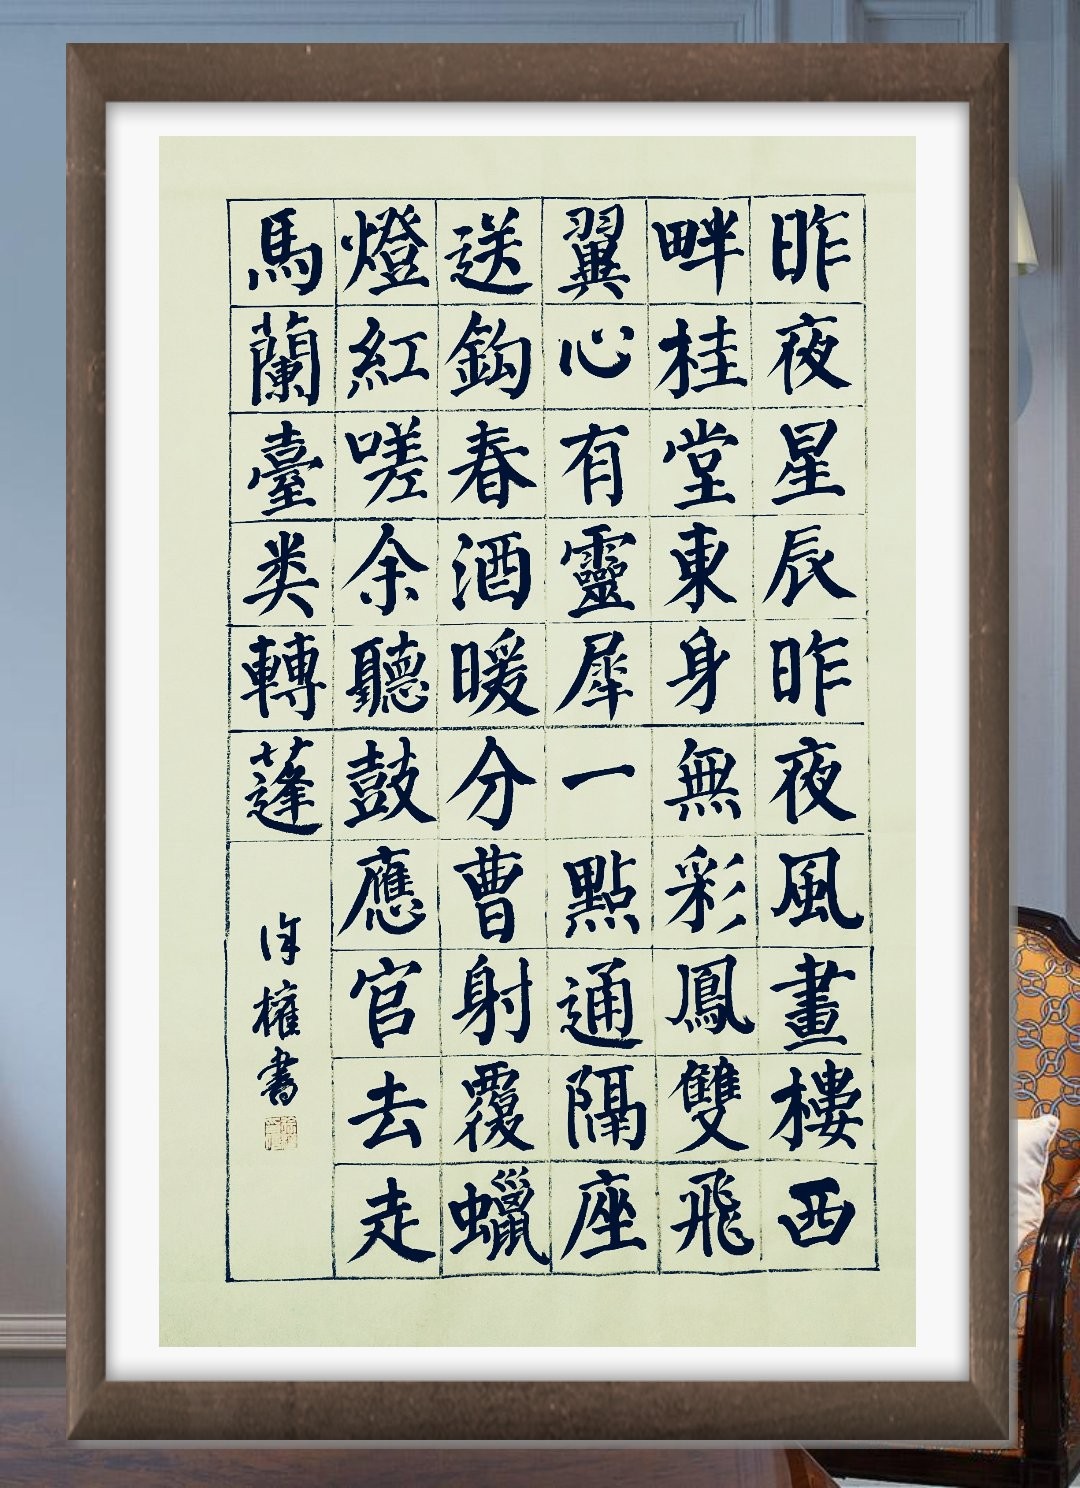 昨夜星辰昨夜風畫樓西
畔桂堂東身無彩鳳雙飛
翼心有靈犀一點通隔座
送鈎春酒暖分曹射覆蠟
燈紅嗟余聽鼓應官去走
馬蘭臺类轉蓬
徐權書